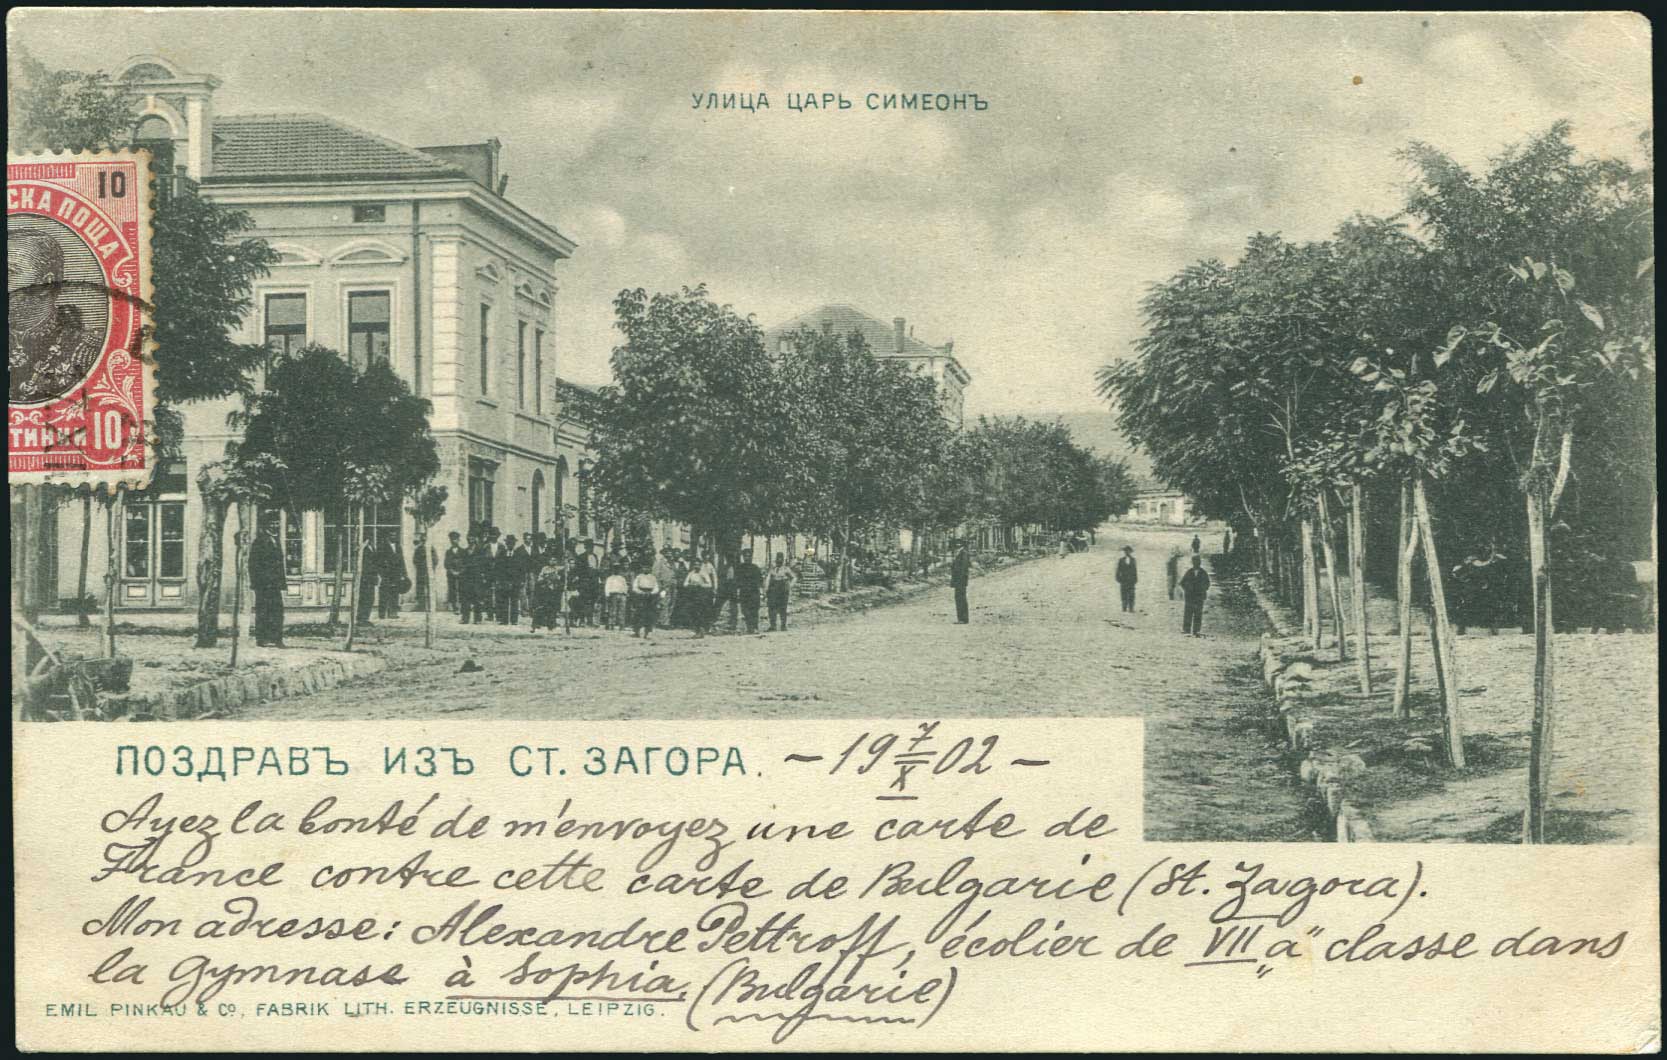 УЛИЦА ЦАРЬ СИМЕОНЪ
10
СКА ПОЩА
ТИНКИ 10
ПОЗДРАВЪ ИЗЪ СТ. ЗАГОРА. – 19 7/X 02 –
Ayez la bonté de m'envoyez une carte de
France contre cette carte de Bulgarie (St. Zagora).
Mon adresse: Alexandre Pettroff, écolier de VII „a” classe dans
la gymnase à Sophia. (Bulgarie)
EMIL PINKAU & Cº, FABRIK LITH. ERZEUGNISSE, LEIPZIG.